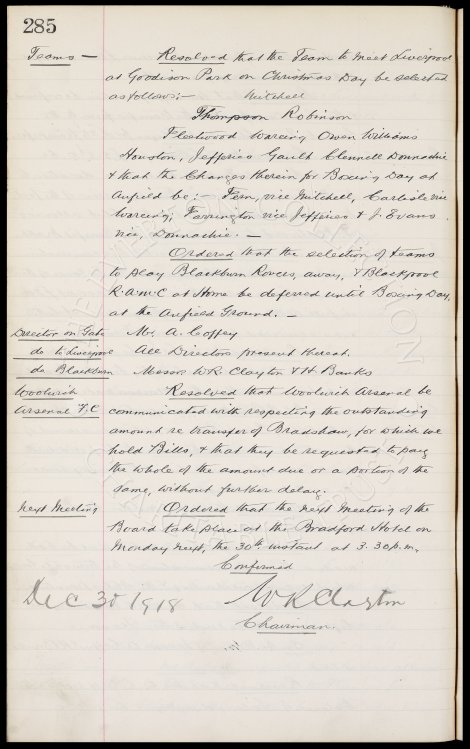 285
Teams — Resolved that the Team to meet Liverpool
at Goodison Park on Christmas Day be selected
as follows:— Mitchell
Thompson Robinson
Fleetwood Wareing Owen Williams
Houston, Jefferies Gault Clennell Donnachie
& that the Changes therein for Boxing Day at
Anfield be:— Fern, vice Mitchell, Carlisle vice
Wareing; Farrington vice Jefferies & J. Evans
vice, Donnachie. —
Ordered that the selection of teams
to play Blackburn Rovers, away, & Blackpool
R.A.M.C at Home be deferred until Boxing Day,
at the Anfield Ground. —
Director on Gate Mr. A. Coffey
do to Liverpool All Directors present thereat.
do Blackburn Messrs W R Clayton & H Banks
Woolwich Resolved that Woolwich Arsenal be
Arsenal F.C communicated with respecting the outstanding
amount re transfer of Bradshaw, for which we
hold Bills, & that they be requested to pay
the whole of the amount due or a portion of the
same, without further delay.
Next Meeting Ordered that the next meeting of the
Board take place at the Bradford Hotel on
Monday next, the 30th instant at 3.30 p.m.
Confirmed
Dec 30 1918 W R Clayton
Chairman.